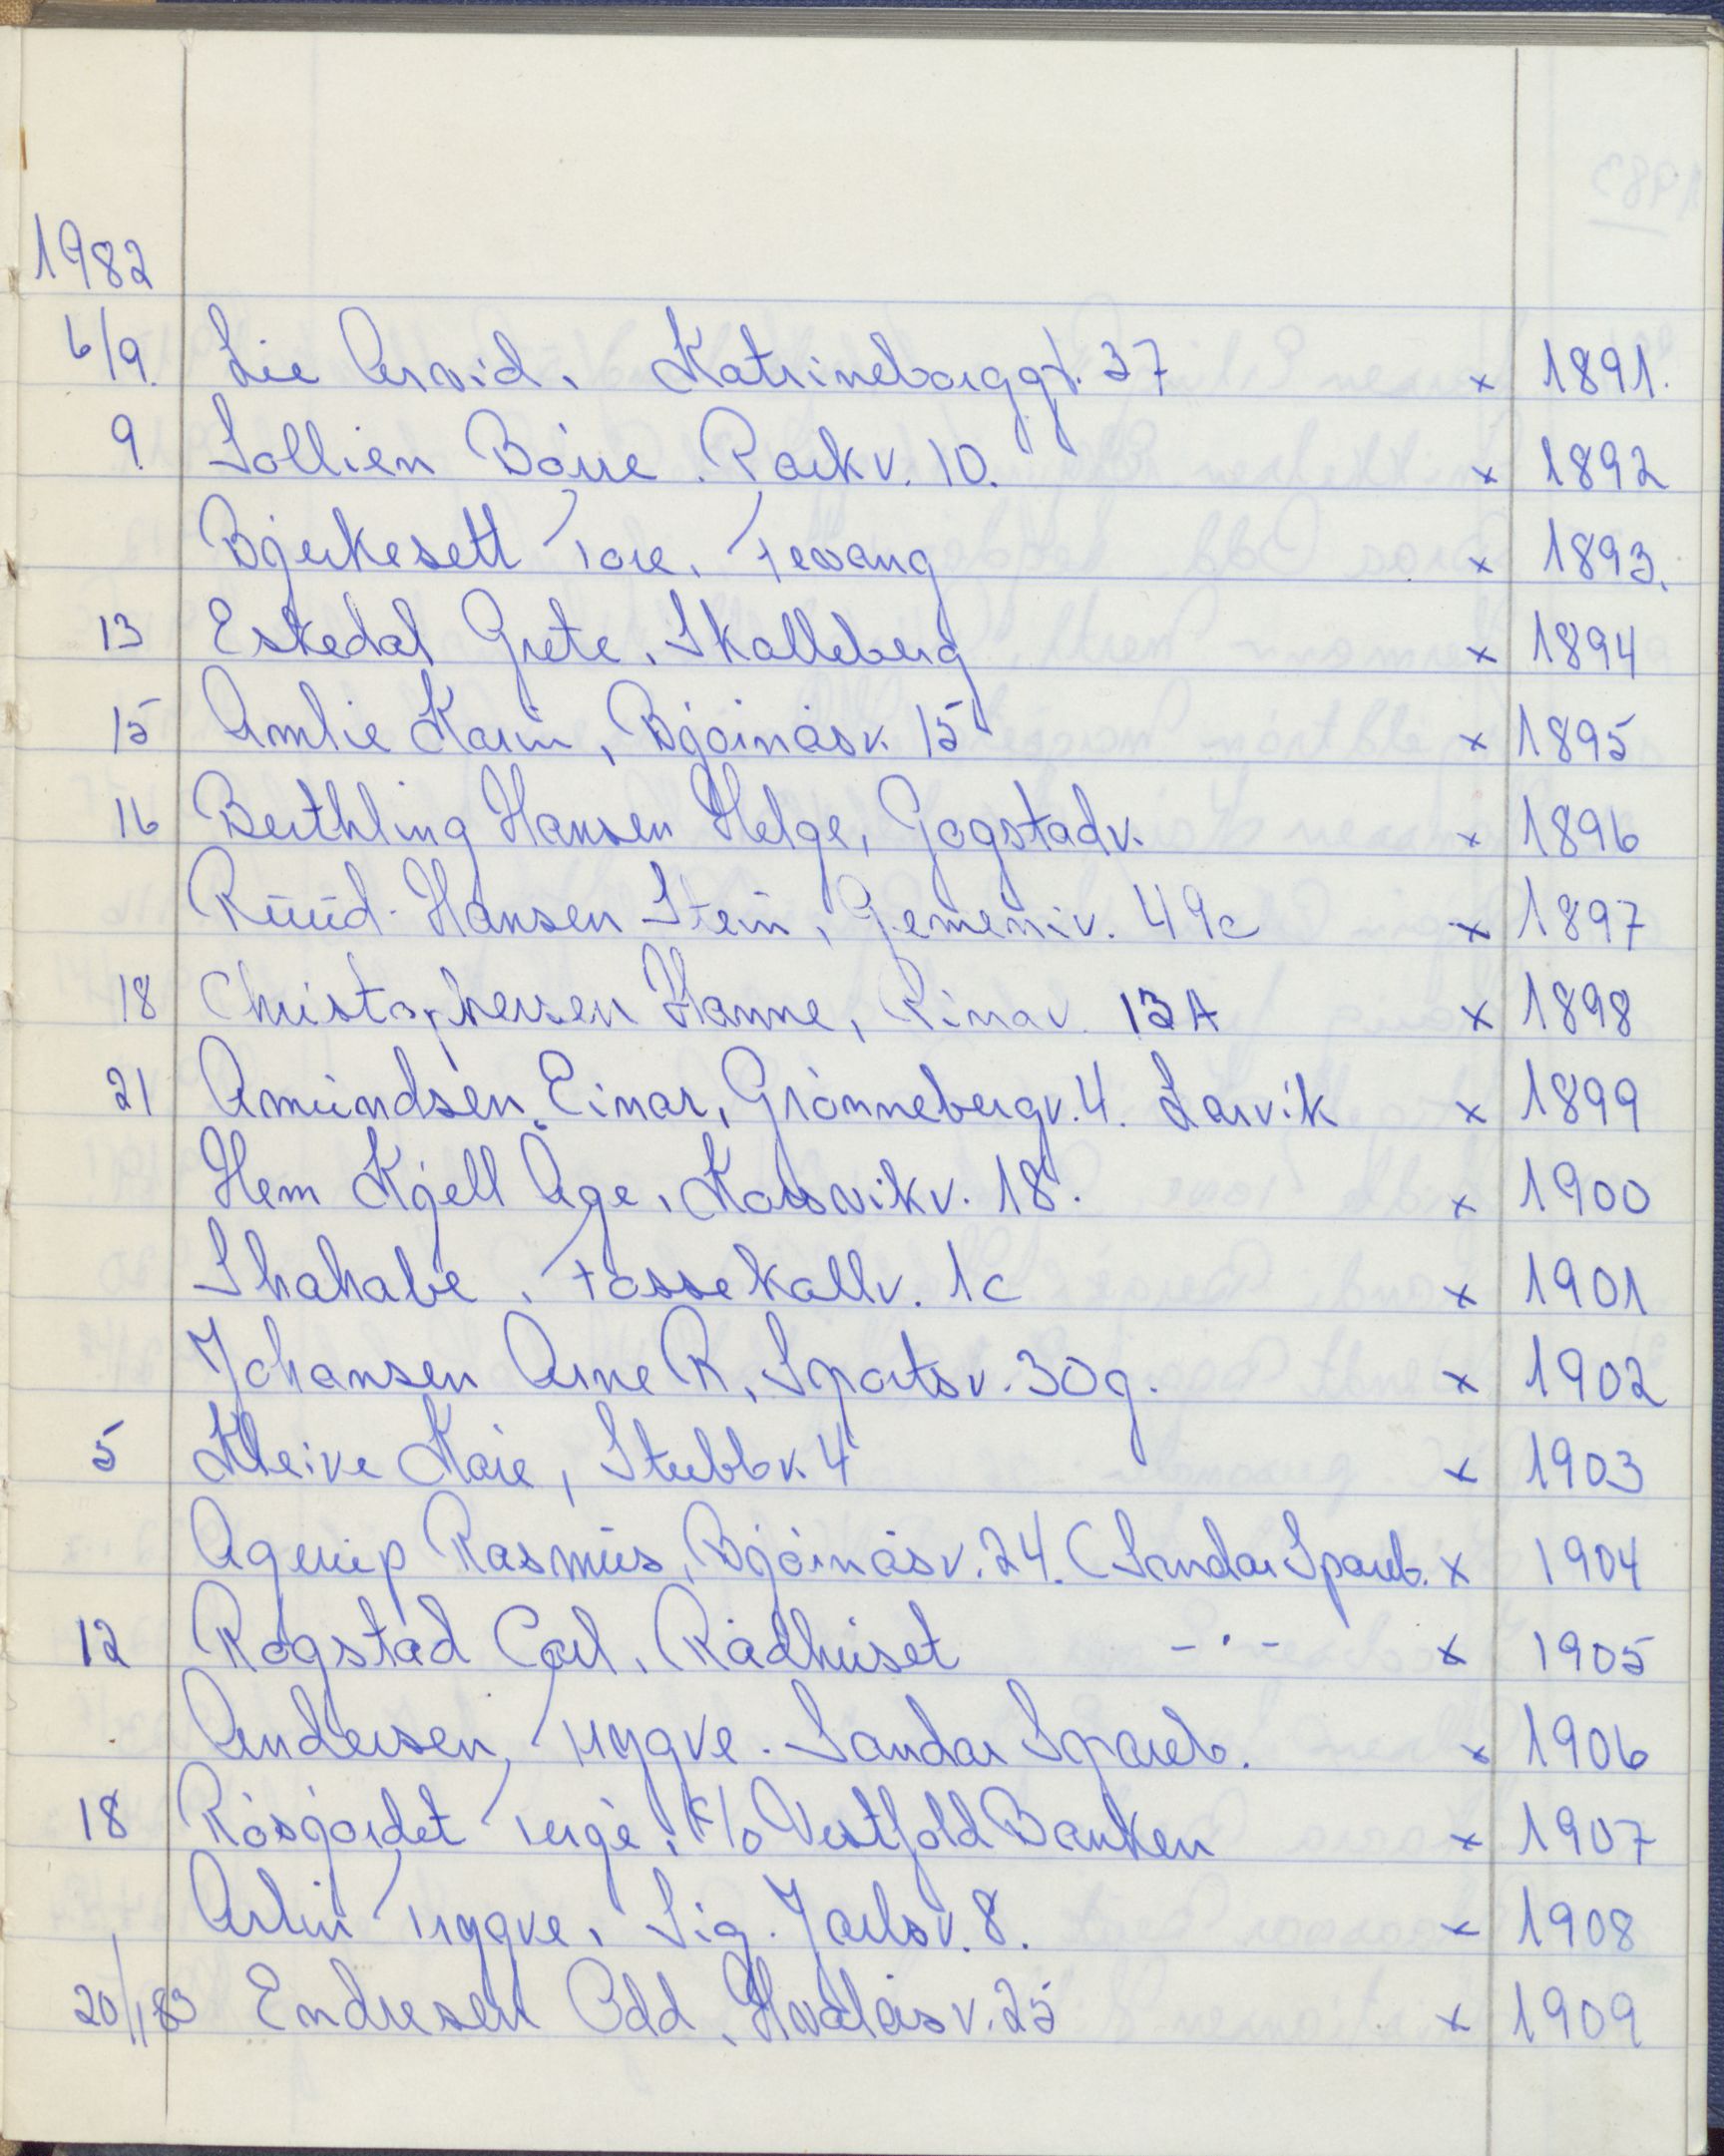 1982
6/9. Lie Arvid. Katrineborggt. 37 x 1891.
9. Sollien Børre. Parkv. 10. x 1892
Bjerkesett Tore. Tevang x 1893.
13 Eskedal Grete. Skalleberg x 1894
15 Amlie Karin, Bjørnåsv. 15 x 1895
16 Berthling Hansen Helge, Gogstadv. x 1896
Ruud-Hansen Stein, Gemeniv. 49c x 1897
18 Christophersen Hanne, Rinav. 13A x 1898
21 Amundsen Einar, Grønnebergv. 4. Larvik x 1899
Hem Kjell Åge, Kausvikv. 18. x 1900
Shahabe. Fossekallv. 1c x 1901
Johansen Arne R, Sportsv. 30g. x 1902
5 Kleive Kåre, Stubbv. 4 x 1903
Agerup Rasmus, Bjørnåsv. 24. (Sandar Spareb. x 1904
12 Rogstad Carl. Rådhuset - " - x 1905
Andersen, Trygve. Sandar Spareb. x 1906
18 Røsgårdet Terje, c/o Vestfold Banken x 1907
Arlin Trygve, Sig. Jarlsv. 8. x 1908
20/1 83 Endresen Odd, Hvalåsv. 25 x 1909